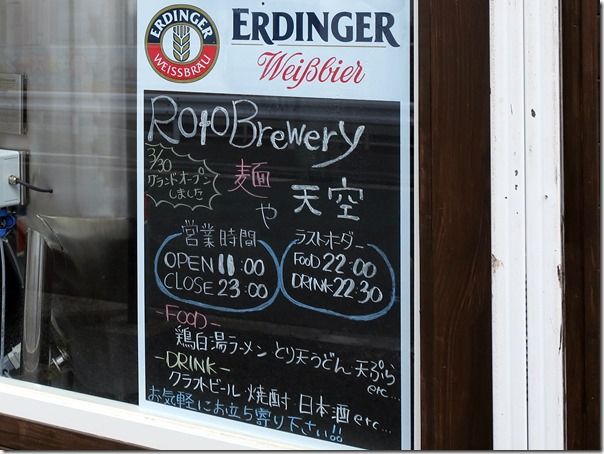 ERDINGER
WEISSBRÄU
ERDINGER
Weißbier
RotoBrewery
3/30
グランドオープン
しました
麺や天空
営業時間
OPEN 11:00
CLOSE 23:00
ラストオーダー
FOOD 22:00
DRINK 22:30
-FOOD-
鶏白湯ラーメン とり天うどん 天ぷら
etc...
-DRINK-
クラフトビール 焼酎 日本酒 etc...
お気軽にお立ち寄り下さい!!